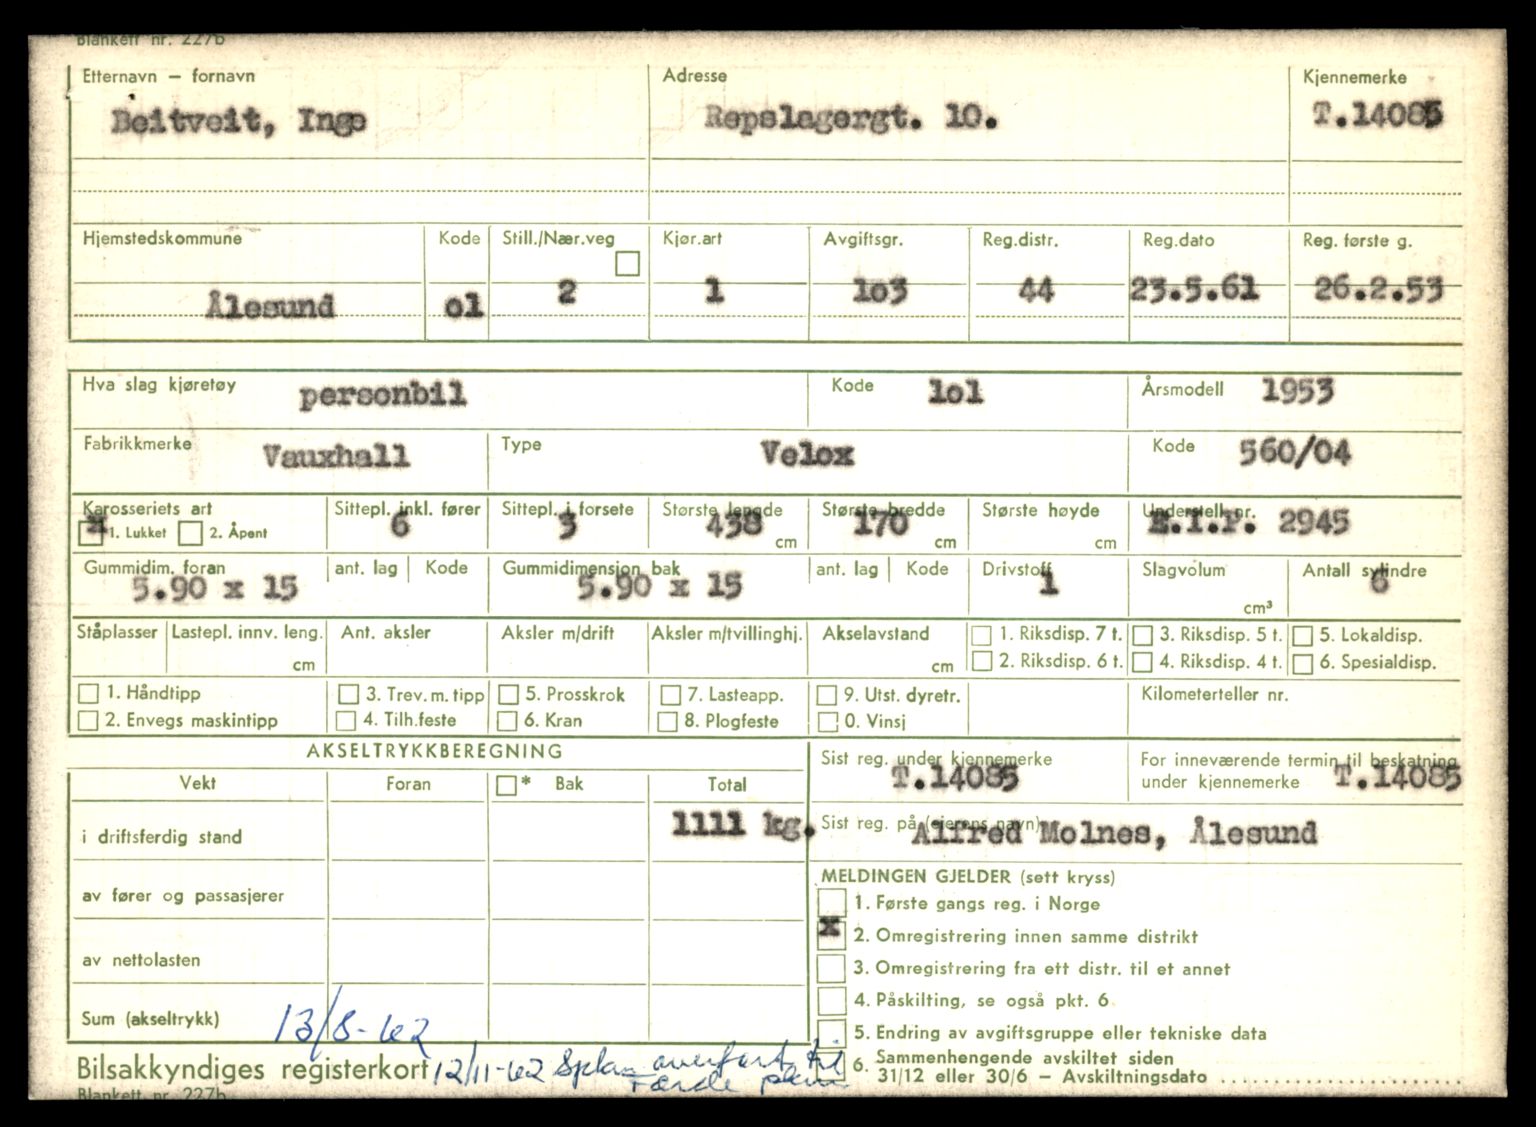 Blankett nr. 227b
Etternavn – fornavn Adresse Kjennemerke
Beitveit, Inge Repslagergt. 10. T.14085
Hjemstedskommune Kode Still./Nær.veg Kjør.art Avgiftsgr. Reg.distr. Reg.dato Reg. første g.
Ålesund o1 2 1 1o3 44 23.5.61 26.2.53
Hva slag kjøretøy personbil Kode 1o1 Årsmodell 1953
Fabrikkmerke Vauxhall Type Velox Kode 560/04
Karosseriets art Sittepl. inkl. fører Sittepl. i forsete Største lengde Største bredde Største høyde Understell nr.
x 1. Lukket 2. Åpent 6 3 438 cm 170 cm cm E.I.P. 2945
Gummidim. foran ant. lag Kode Gummidimensjon bak ant. lag Kode Drivstoff Slagvolum Antall sylindre
5.90 x 15 5.90 x 15 1 cm³ 6
Ståplasser Lastepl. innv. leng. Ant. aksler Aksler m/drift Aksler m/tvillinghj. Akselavstand 1. Riksdisp. 7 t. 3. Riksdisp. 5 t. 5. Lokaldisp.
cm cm 2. Riksdisp. 6 t. 4. Riksdisp. 4 t. 6. Spesialdisp.
1. Håndtipp 3. Trev. m. tipp 5. Prosskrok 7. Lasteapp. 9. Utst. dyretr. Kilometerteller nr.
2. Envegs maskintipp 4. Tilh.feste 6. Kran 8. Plogfeste 0. Vinsj
AKSELTRYKKBEREGNING
Sist reg. under kjennemerke T.14085
For inneværende termin til beskatning
under kjennemerke T.14085
Vekt Foran * Bak Total
i driftsferdig stand 1111 kg.
Sist reg. på (eierens navn) Alfred Molnes, Ålesund
av fører og passasjerer
av nettolasten
Sum (akseltrykk) 13/8-62
MELDINGEN GJELDER (sett kryss)
1. Første gangs reg. i Norge
x 2. Omregistrering innen samme distrikt
3. Omregistrering fra ett distr. til et annet
4. Påskilting, se også pkt. 6
5. Endring av avgiftsgruppe eller tekniske data
6. Sammenhengende avskiltet siden
31/12 eller 30/6 – Avskiltningsdato ......................
Bilsakkyndiges registerkort 12/11-62 overført til
Blankett nr. 227b